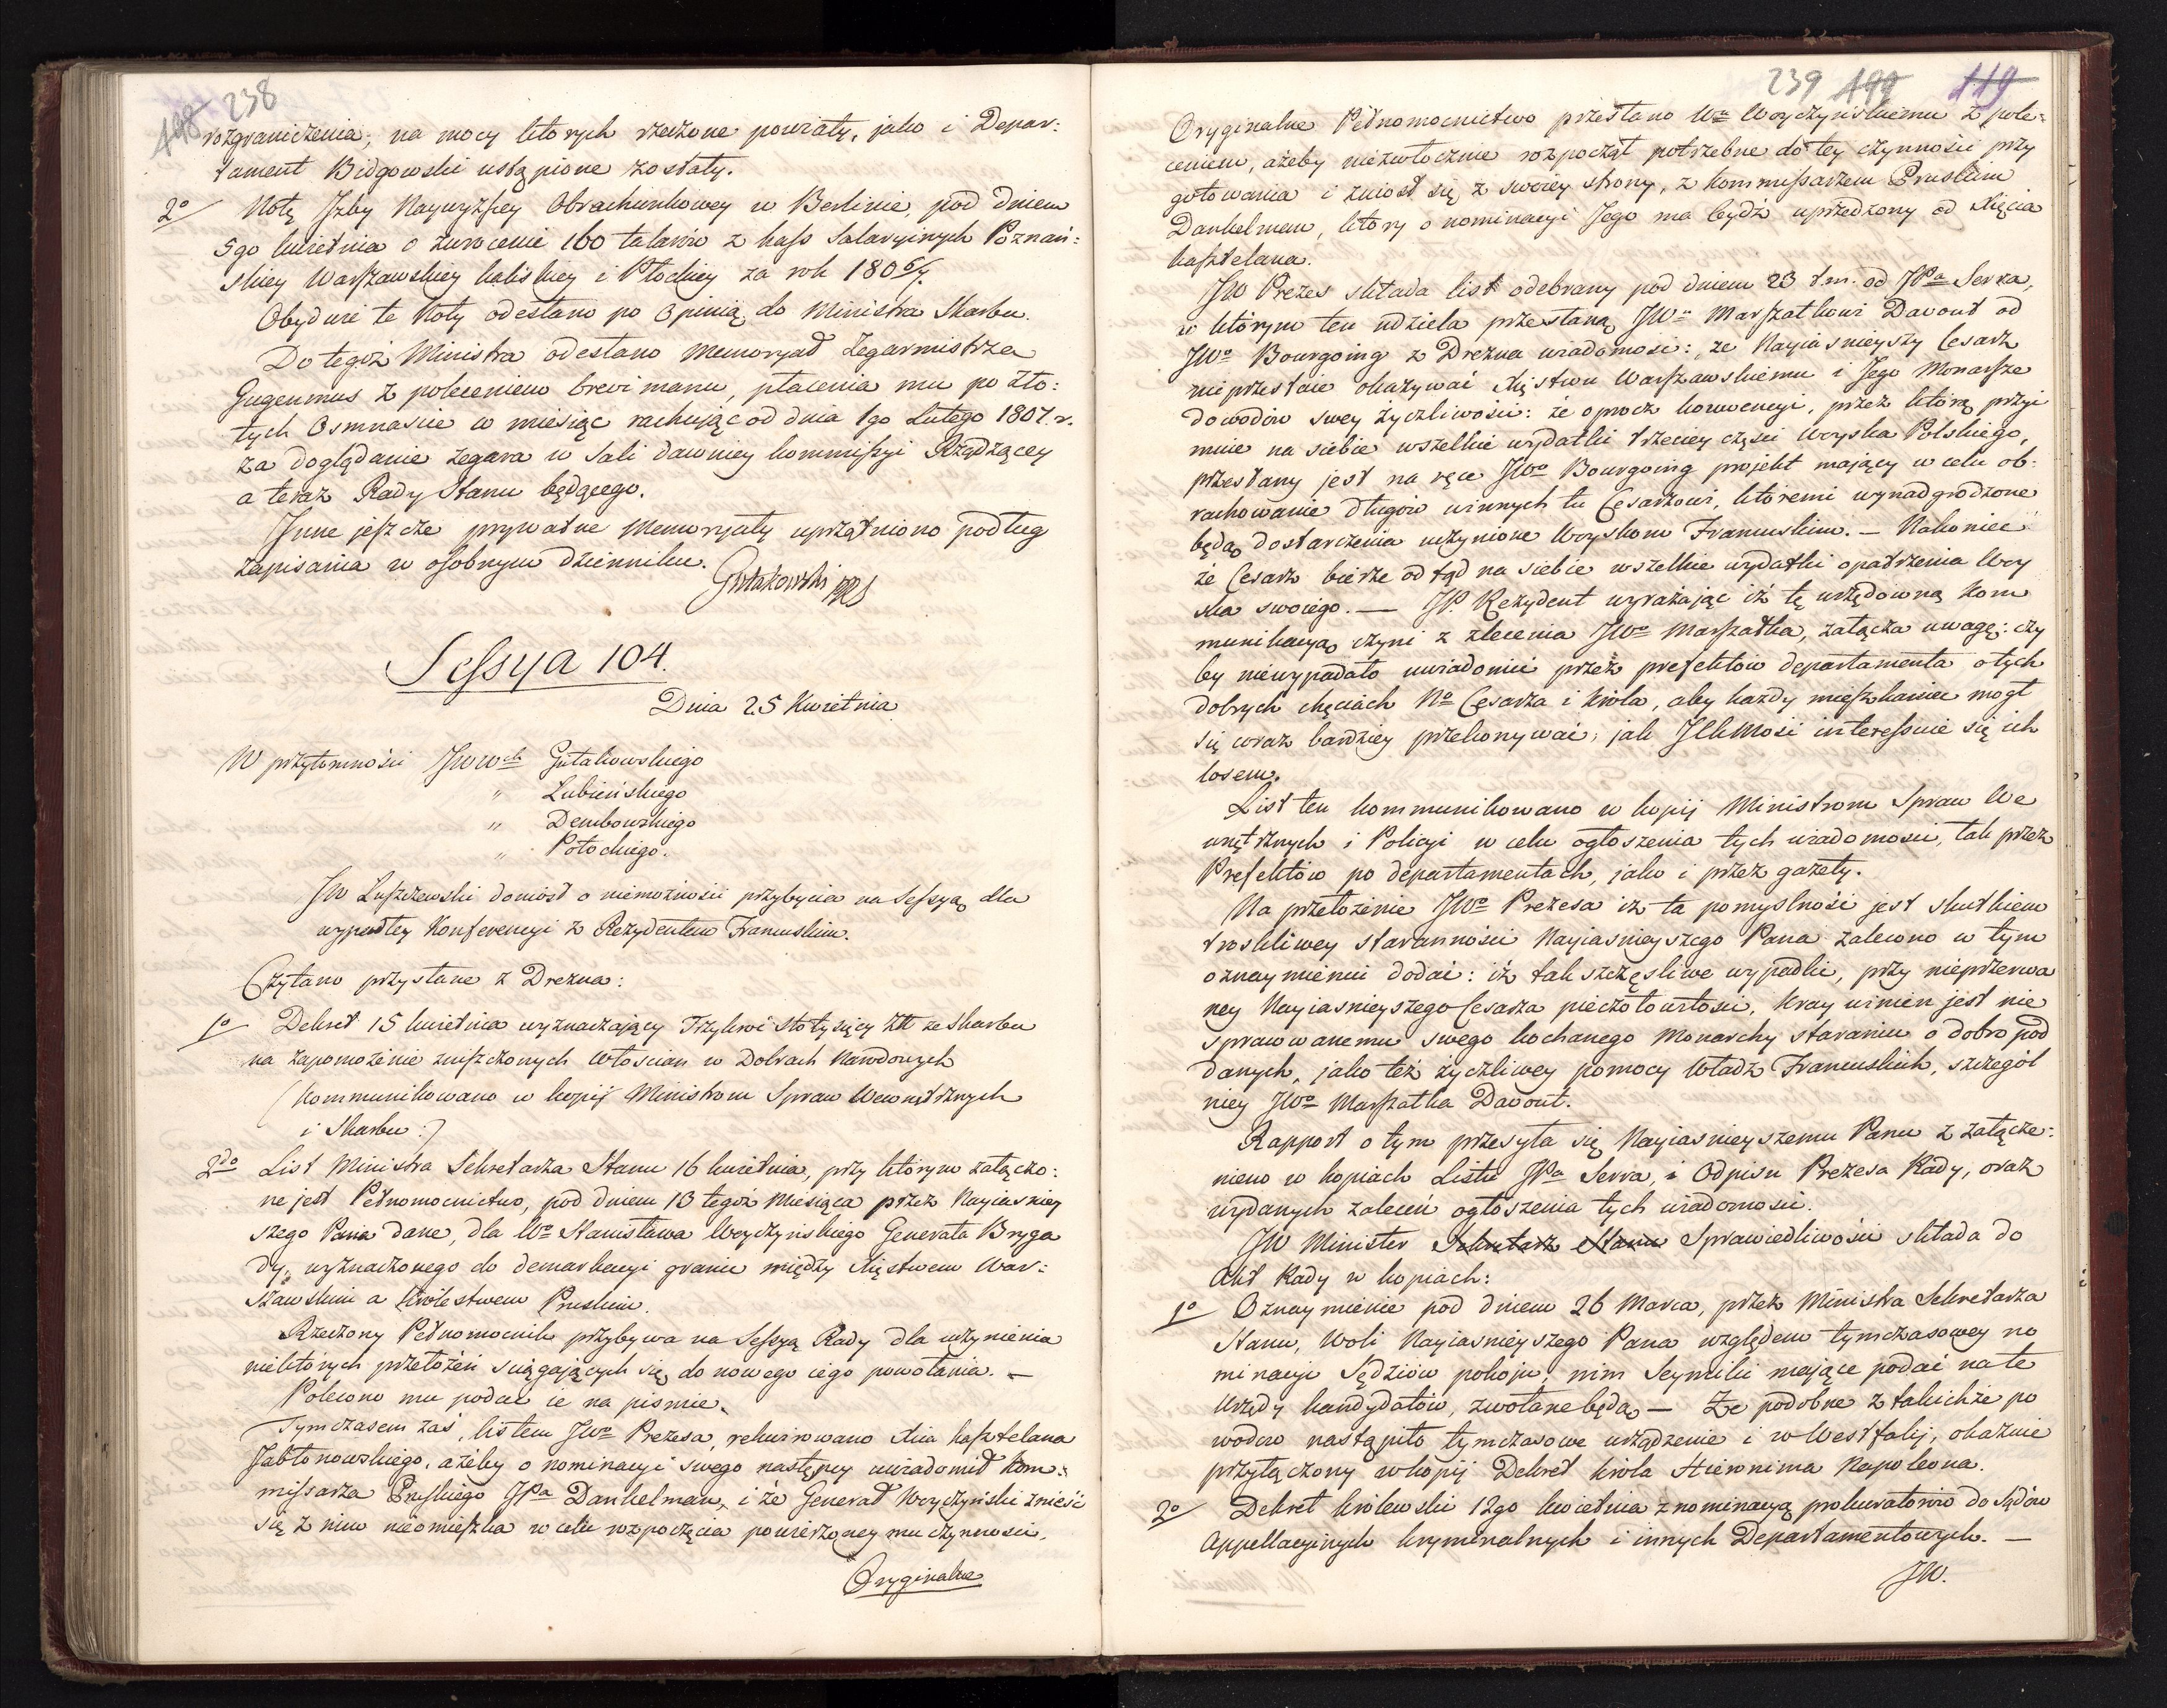 198 238
rozgraniczenia, na mocy których rzeczone powiaty, jako i Depar:
tament Bidgowski ustąpione zostały.
2o Notę Izby Naywyższey Obrachunkowey w Berlinie, pod dniem
5go kwietnia o zwrócenie 160 talarów z kass Salaryinych Poznań:
skiey Warszawskiey kaliskiey i Płockiey za rok 1806/7.
Obydwie te Noty odesłano po Opinią do Ministra Skarbu.
Do tegoż Ministra odesłano memoryał Zegarmistrza
Gugenmus z poleceniem brevi manu, płacenia mu po zło:
tych Osmnaście w miesiąc rachując od dnia 1go Lutego 1807. r.
za doglądanie zegara w Sali dawniey kommissyi Rządzącey
a teraz Rady Stanu będącego.
Inne jeszcze prywatne Memoryały uprzątniono podług
zapisania w osobnym dzienniku.
Gutakowski PRS
Sessya 104.
Dnia 25 Kwietnia
W przytomności JWWch Gutakowskiego
" Lubieńskiego
" Dembowskiego
" Potockiego.
JW Łuszczewski doniosł o niemożności przybycia na Sessyą dla
wypadłey Konferencyi z Rezydentem Francuskim.
Czytano przysłane z Drezna:
1o Dekret 15 kwietnia wyznaczający Trzykroć stotysięcy Złt ze skarbu
na zapomożenie zniszczonych Włościan w Dobrach Narodowych
(Kommunikowano w kopij Ministrom Spraw Wewnętrznych
i Skarbu:)
2do List Ministra Sekretarza Stanu 16 kwietnia, przy którym załączo:
ne jest Pełnomocnictwo, pod dniem 13 tegoż Miesiąca przez Nayiasniey
szego Pana dane, dla Wo Stanisława Woyczyńskiego Generała Bryga
dy, wyznaczonego do demarkacyi granic między Xięstwem War:
szawskim a Królestwem Pruskim.
Rzeczony Pełnomocnik przybywa na Sessyą Rady dla uczynienia
niektórych przełożeń sciągających się do nowego iego powołania. —
Polecono mu podać ie na pismie.
Tymczasem zaś, listem JWo Prezesa, rekwirowano Xcia kasztelana
Jabłonowskiego, ażeby o nominacyi swego następcy uwiadomił Kom:
missarza Pruskiego JPa Dankelman, i że Generał Woyczyński znieść
się z nim nieomieszka w celu rozpoczęcia powierzoney mu czynności.
Oryginalne
239 199 119
Oryginalne Pełnomocnictwo przesłano Wu Woyczyńskiemu z pole:
ceniem, ażeby niezwłocznie rozpoczął potrzebne do tey czynności przy
gotowania i zniosł się z swoiey strony, z kommissarzem Pruskim
Dankelmem, który o nominacyi Jego ma bydź uprzedzony od Xięcia
kasztelana.
JW Prezes składa list odebrany pod dniem 23 t.m. od JPa Serra,
w którym ten udziela przesłaną JWu Marszałkowi Davout od
JWo Bourgoing z Drezna wiadomość: że Nayiasnieyszy Cesarz
nieprzestaie okazywać Xięstwu Warszawskiemu i Jego Monarsze
dowodów swey życzliwości: że oprócz konwencyi, przez którą przyi
muie na siebie wszelkie wydatki trzeciey części Woyska Polskiego,
przesłany jest na ręce JWo Bourgoing projekt mający w celu ob:
rachowanie długów winnych tu Cesarzowi, któremi wynadgrodzone
będą dostarczenia uczynione Woyskom Francuskim. — Nakoniec
że Cesarz bierze odtąd na siebie wszelkie wydatki opatrzenia Woy
ska swoiego. — JP. Rezydent wyrażając iż tę urzędowną Kom
munikacyą czyni z zlecenia JWo Marszałka, załącza uwagę: czy
by niewypadało uwiadomić przez prefektów departamenta o tych
dobrych chęciach No Cesarza i Króla, aby każdy mieszkaniec mogł
się coraz bardziey przekonywać, jak JCKMość interessuie się ich
losem.
List ten kommunikowano w kopij Ministrom Spraw We
wnętrznych i Policyi w celu ogłoszenia tych wiadomości, tak przez
Prefektów po departamentach, jako i przez gazety.
Na przełożenie JWo Prezesa iż ta pomyslność jest skutkiem
troskliwey staranności Nayiasnieyszego Pana zalecono w tym
oznaymieniu dodać: iż tak szczęsliwe wypadki, przy nieprzerwa
ney Nayiasnieyszego Cesarza pieczołowitości, kray winien jest nie
sprawowanemu swego kochanego Monarchy staraniu o dobro pod
danych, jako też życzliwey pomocy Władz Francuskich, szczegól
niey JWo Marszałka Davout.
Rapport o tym przesyła się Nayiasnieyszemu Panu z załącze:
niem w kopiach Listu JPa Serra, i Odpisu Prezesa Rady, oraz
wydanych zaleceń ogłoszenia tych wiadomości.
JW Minister Sekretarz Stanu Sprawiedliwości składa do
Akt Rady w kopiach:
1o Oznaymienie pod dniem 26 Marca, przez Ministra Sekretarza
Stanu, Woli Nayiasnieyszego Pana względem tymczasowey no
minacyi Sędziów pokoju, nim Seymiki mające podać na te
Urzędy kandydatów, zwołane będą — Że podobne z takichże po
wodów nastąpiło tymczasowe urządzenie i w Westfalij, okazuie
przyłączony w kopij Dekret króla Hieronima Napoleona.
2o Dekret królewski 12go kwietnia z nominacyą prokuratorów do Sądów
Appellacyinych kryminalnych i innych Departamentowych. —
JW.